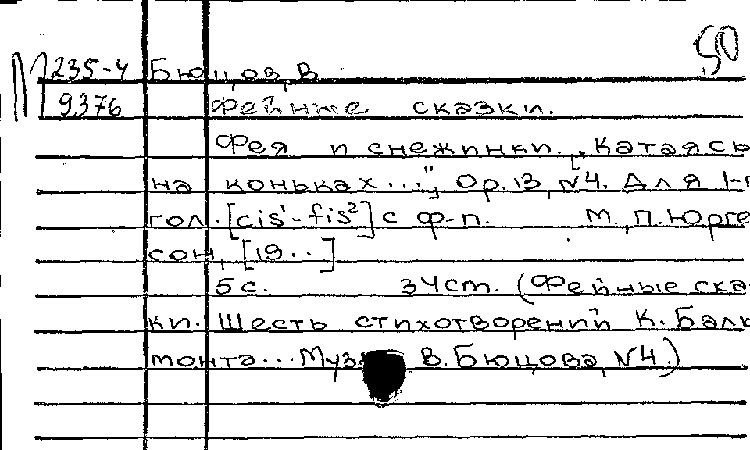 50
235-4 Бюцов, В.
9376 Фейные сказки.
Фея и снежинки. [„Катаясь
на коньках...", Op. 13, №4. Для 1-г
гол. [cis¹-fis²] с ф-п. М., П. Юрге
сон, [19..]
5 с. 34 cm. (Фейные сказ
ки. Шесть стихотворений К. Баль
монта... Муз. В. Бюцова, №4.)